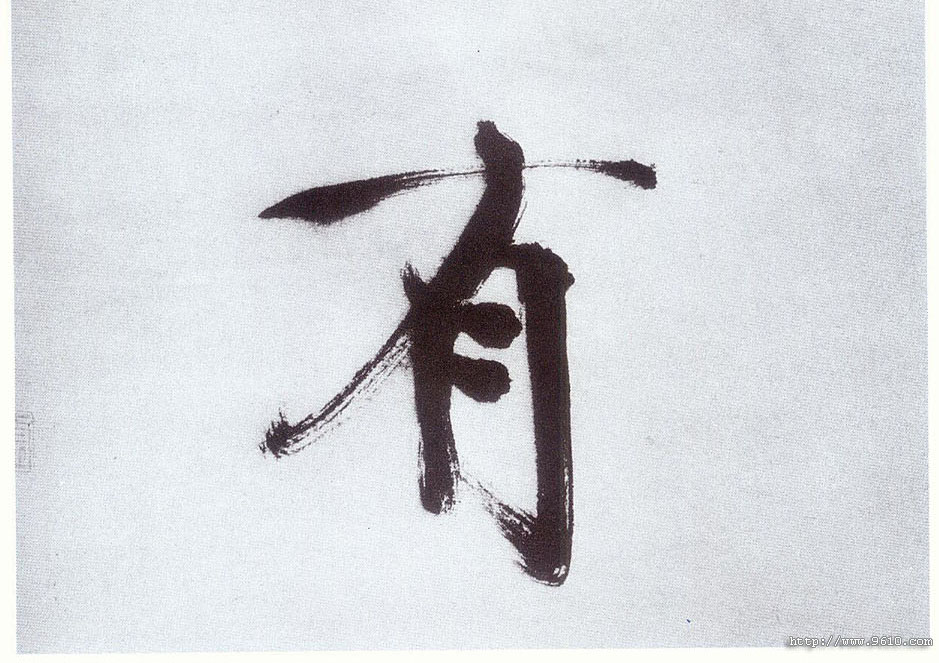 有
http://www.9610.com